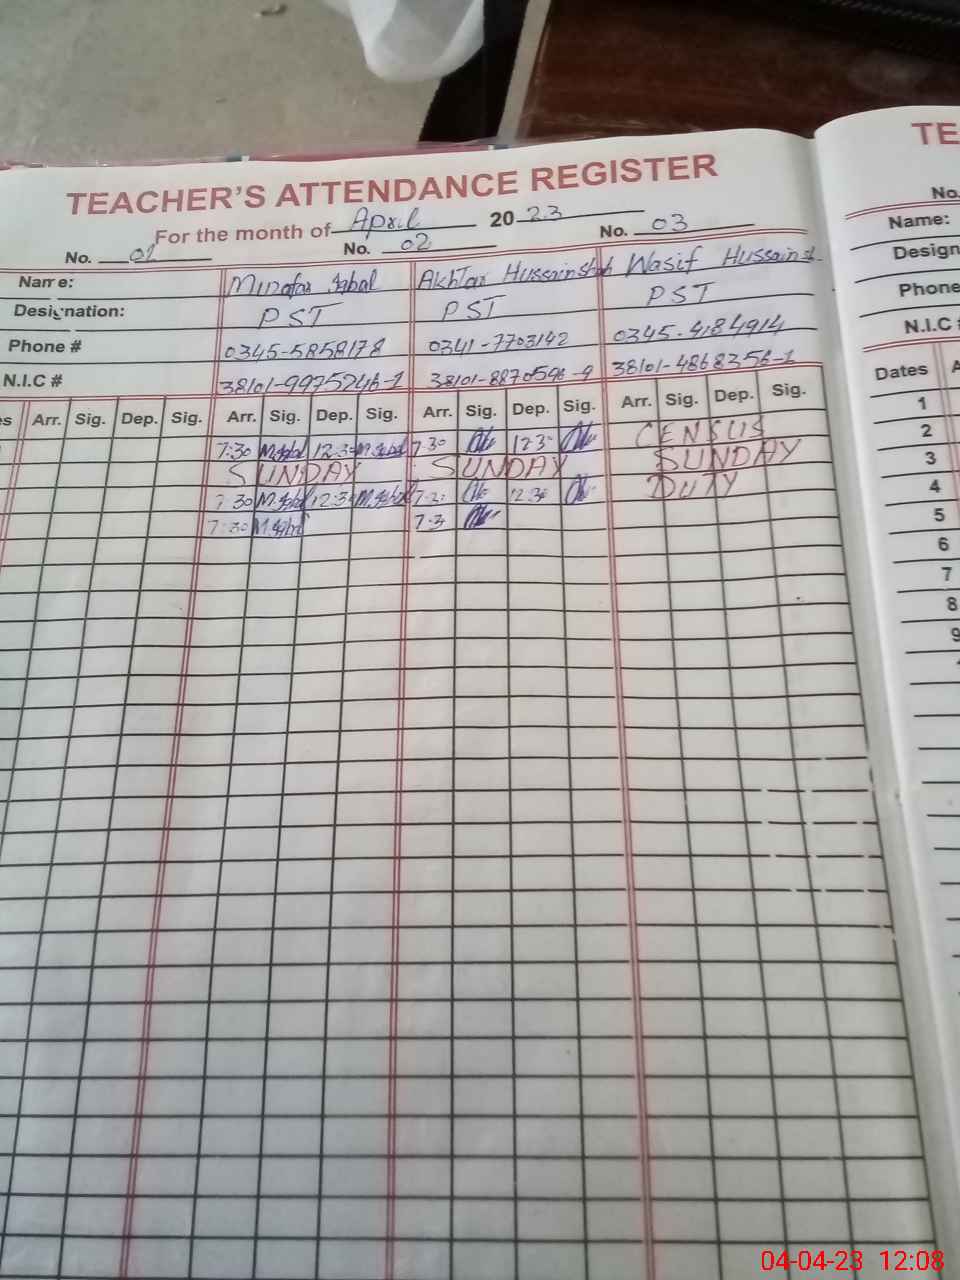 TEACHER'S ATTENDANCE REGISTER
TE
For the month of April 20 23
No. 01 No. 02 No. 03
No.
Name: Iqbal Akhtar Hussain Shah Wasif Hussain sh.
Name:
Designation: PST PST PST
Design
Phone # 0345-5858178 0341-7703142 0345-4184914
Phone
N.I.C # 38101-9975246-1 38101-8870596-9 38101-4868356-1
N.I.C #
es Arr. Sig. Dep. Sig. Arr. Sig. Dep. Sig. Arr. Sig. Dep. Sig. Arr. Sig. Dep. Sig.
Dates A
7:30 M.Iqbal 12:3 M.Iqbal 7:30 12:3 CENSUS
1
SUNDAY SUNDAY SUNDAY
2
7:30 M.Iqbal 12:3 M.Iqbal 7:3 12:30 DUTY
3
7:30 M.Iqbal 7:3
4
5
6
7
8
9
04-04-23 12:08